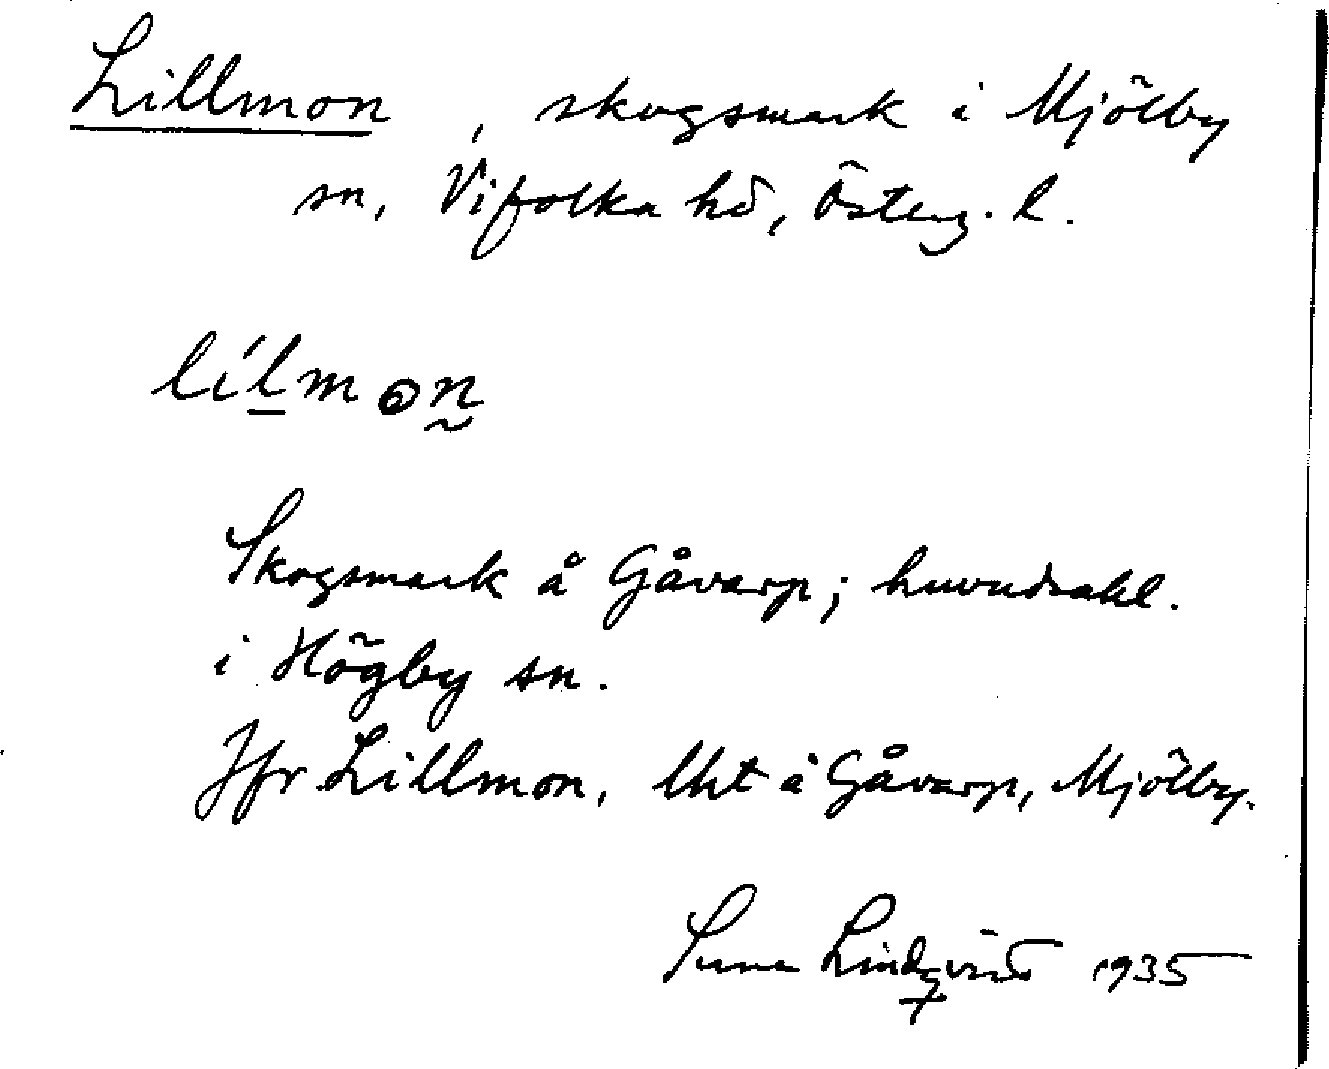 Lillmon, skogsmark i Mjölby
sn, Vifolka hd, Österg. l.
Skogsmark å Gåvarp; huvudsakl.
i Högby sn.
Jfr Lillmon, lht å Gåvarp, Mjölby.
Sune Lindqvist 1935